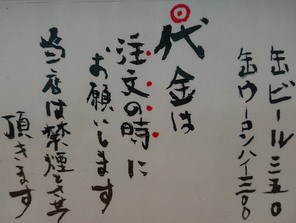 缶ビール三五〇
缶ウーロンハイ三〇〇
代金は
注文の時に
お願いします
当店は禁煙とさせ
頂きます